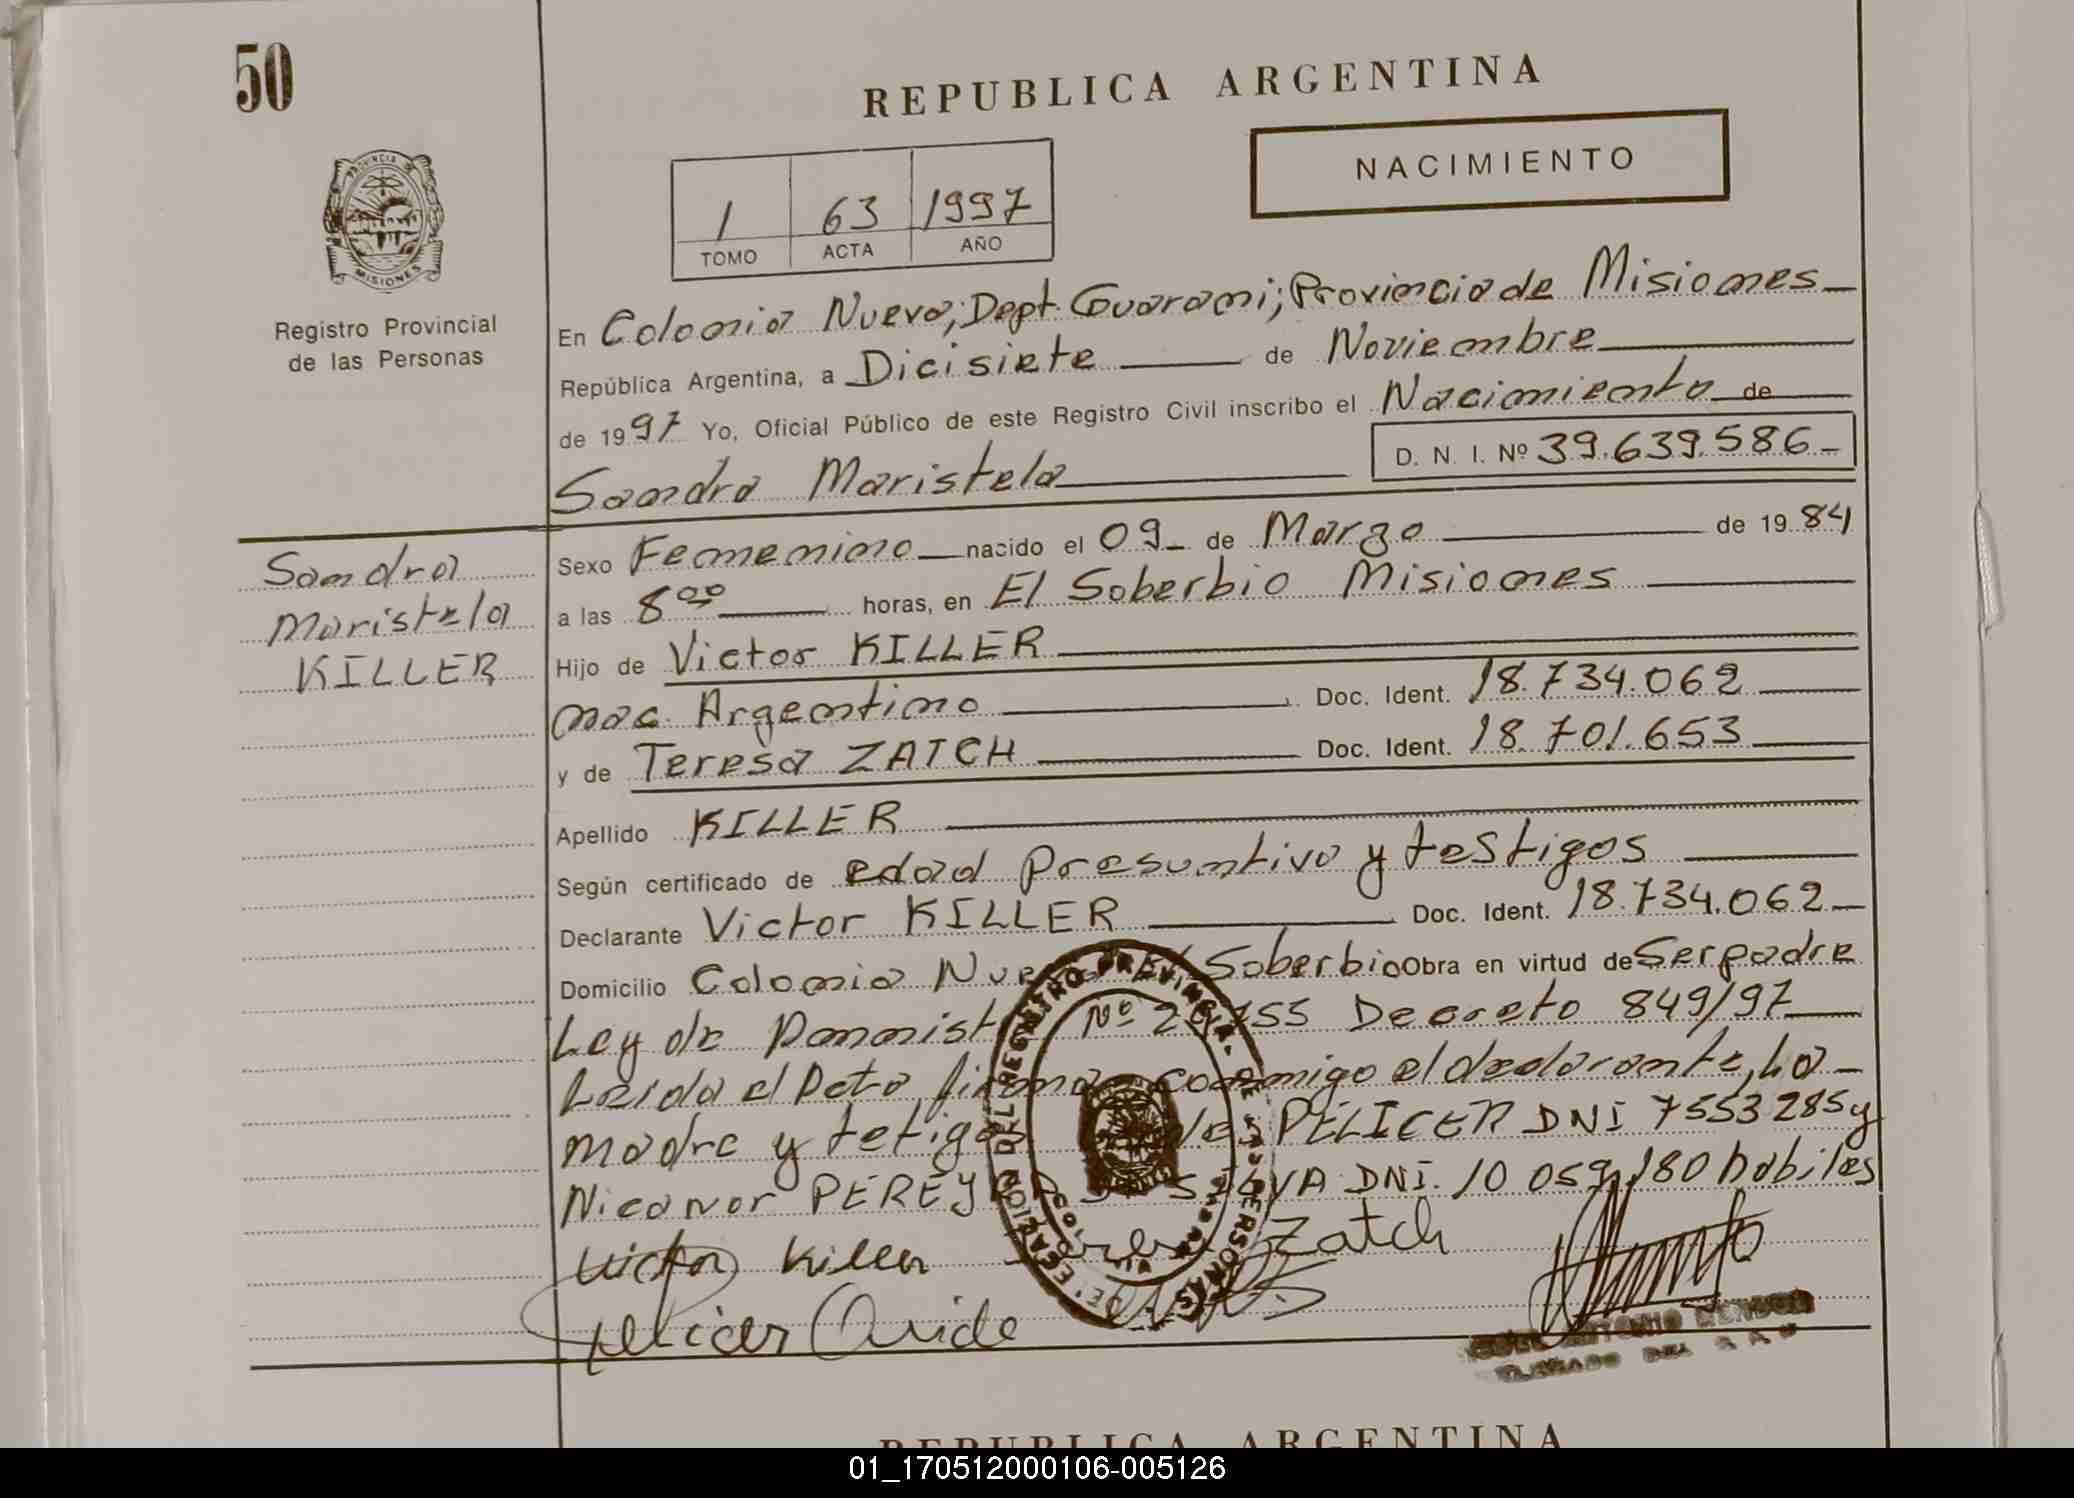 50
REPUBLICA ARGENTINA
NACIMIENTO
1 63 1997
TOMO ACTA AÑO
PROVINCIA DE
MISIONES
Registro Provincial
de las Personas
En Colonia Nueva; Dept. Guarani; Provincia de Misiones
República Argentina, a Dicisiete de Noviembre
de 1997 Yo, Oficial Público de este Registro Civil inscribo el Nacimiento de
D. N. I. Nº 39.639.586
Sandra Maristela
Sandra
Maristela
KILLER
Sexo Femenino nacido el 09 de Marzo de 1984
a las 8 00 horas, en El Soberbio Misiones
Hijo de Victor KILLER
nac. Argentino Doc. Ident. 18.734.062
y de Teresa ZATCH Doc. Ident. 18.701.653
Apellido KILLER
Según certificado de edad Presuntiva y testigos
Declarante Victor KILLER Doc. Ident. 18.734.062
Domicilio Colonia Soberbio Obra en virtud de Ser padre
Ley de Nº Decreto 849/97
Leida el Acta, firma conmigo el declarante, La
madre y PELICER DNI 7553285 y
Nicanor PEREYRA SILVA DNI. 10 059.180 habiles
Victor Killer Zatch
Pellicer Ovide
01_170512000106-005126
REPUBLICA ARGENTINA